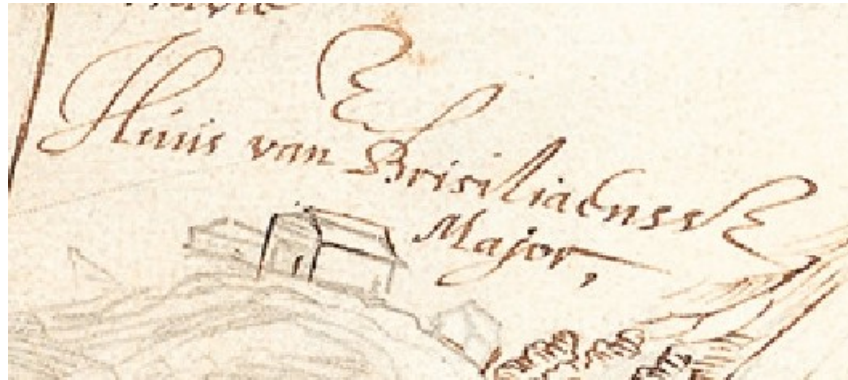 Huiis van Brisiliaensse
Major,